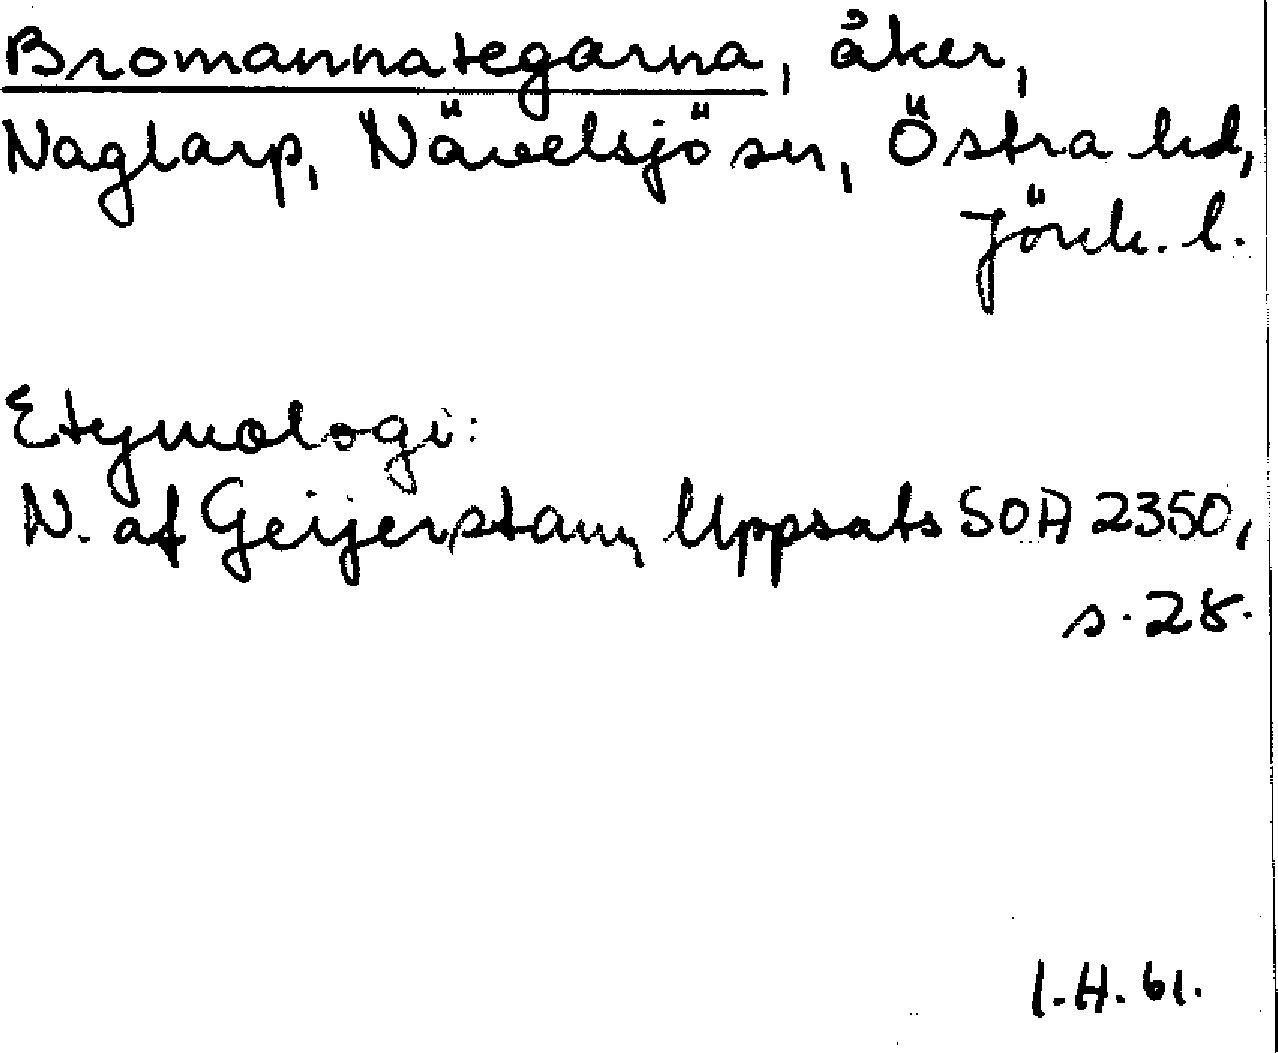 Bromannategarna, åker,
Naglarp, Nävelsjö sn, Östra hd,
Jönk. l.
Etymologi:
N. af Geijerstam, Uppsats SOA 2350,
s. 28.
I.H. 61.